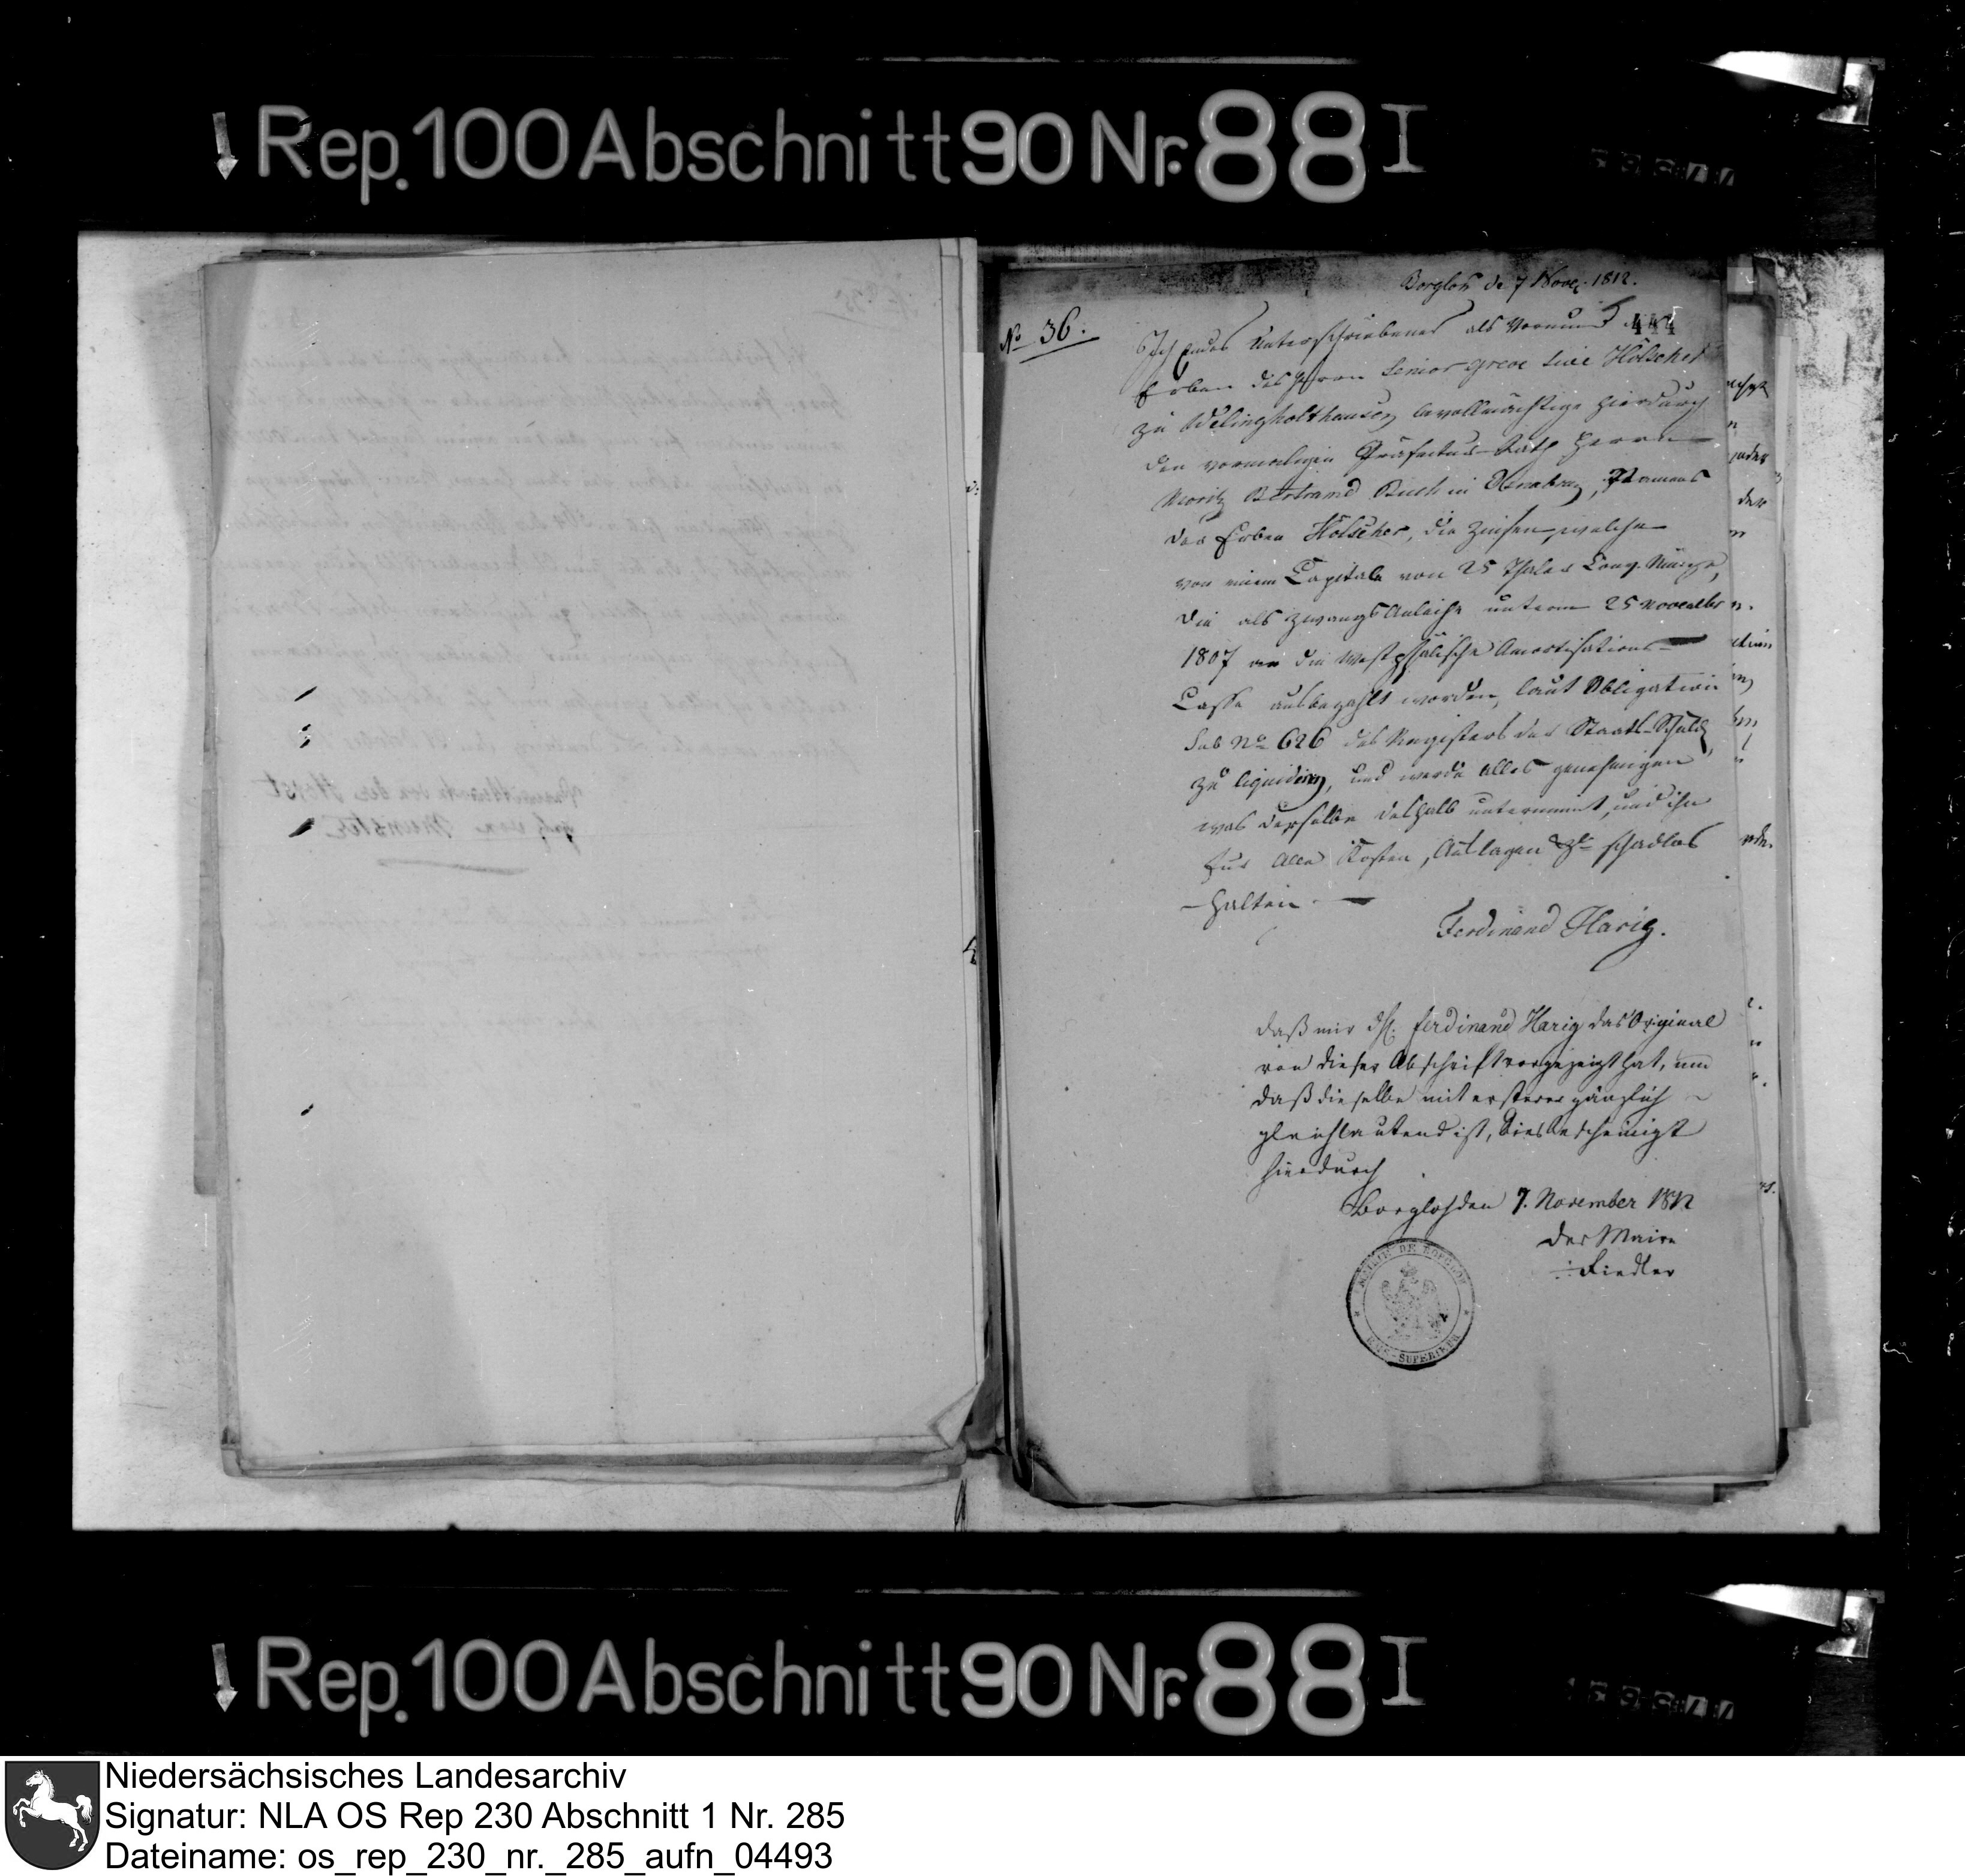 Rep. 100 Abschnitt 90 Nr. 88 I
Borgloh de 7 Novez. 1812.
No 36.
444
Ich Endes Unterschriebener als Vormund
Erben des Herrn Senior Greve sive Hölscher
zu Wellingholthausen bevollmächtige hierdurch
den vormaligen Präfectur-Rath Herrn
Moritz Bertrand Buch in Osnabrug, Namens
der Erben Hölscher, die Zinsen, welche
von einem Capitale von 25 Thaler Conv. Münze,
die als Zwangs Anleihe unterm 25 November
1807 an die Westphälische Amortisations-
Casse ausbezahlt worden, laut Obligation
sub No 626 des Registers der Staats-Schuld,
zu liquidiren, und werde alles genehmigen
was derselbe deshalb unternimmt, und ihn
für alle Kosten, Auslagen schadlos
halten.
Ferdinand Harig.
Daß mir Ferdinand Harig das Original
von dieser Abschrift vorgezeigt hat, und
daß dieselbe mit ersterer gänzlich
gleichlautend ist, dies bescheinigt
hierdurch
Borgloh den 7. November 1812
Der Maire
Fiedler
MAIRIE DE BORGLOH
EMS-SUPERIEUR
Rep. 100 Abschnitt 90 Nr. 88 I
Niedersächsisches Landesarchiv
Signatur: NLA OS Rep 230 Abschnitt 1 Nr. 285
Dateiname: os_rep_230_nr._285_aufn_04493